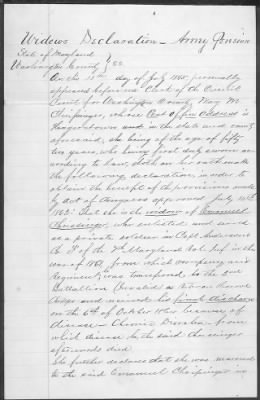 Widows Declaration - Army Pension
State of Maryland
Washington County } SS.
On the day of July 1865 personally
appeared before me Clerk of the Circuit
Court for Washington County, Mary M.
whose Post Office address is
Hagerstown and in the state and county
aforesaid, she being of the age of fifty
two years, who being first duly sworn ac-
cording to law, doth on her oath make
the following declaration, in order to
obtain the benefit of the provisions made
by Act of Congress approved July 14th
1862: That she is the widow of Emanuel
who enlisted and served
as a private soldier in Capt.
Co. of the Maryland Vol. Inf. in the
war of 1861, from which company and
Regiment he was transferred to the
Battalion Invalids or Veteran Reserve
Corps and received his final discharge
on the 6th of October 1864 because of
disease - Chronic from
which disease he the said
afterwards died.
She further declares that she was married
to the said Emanuel in